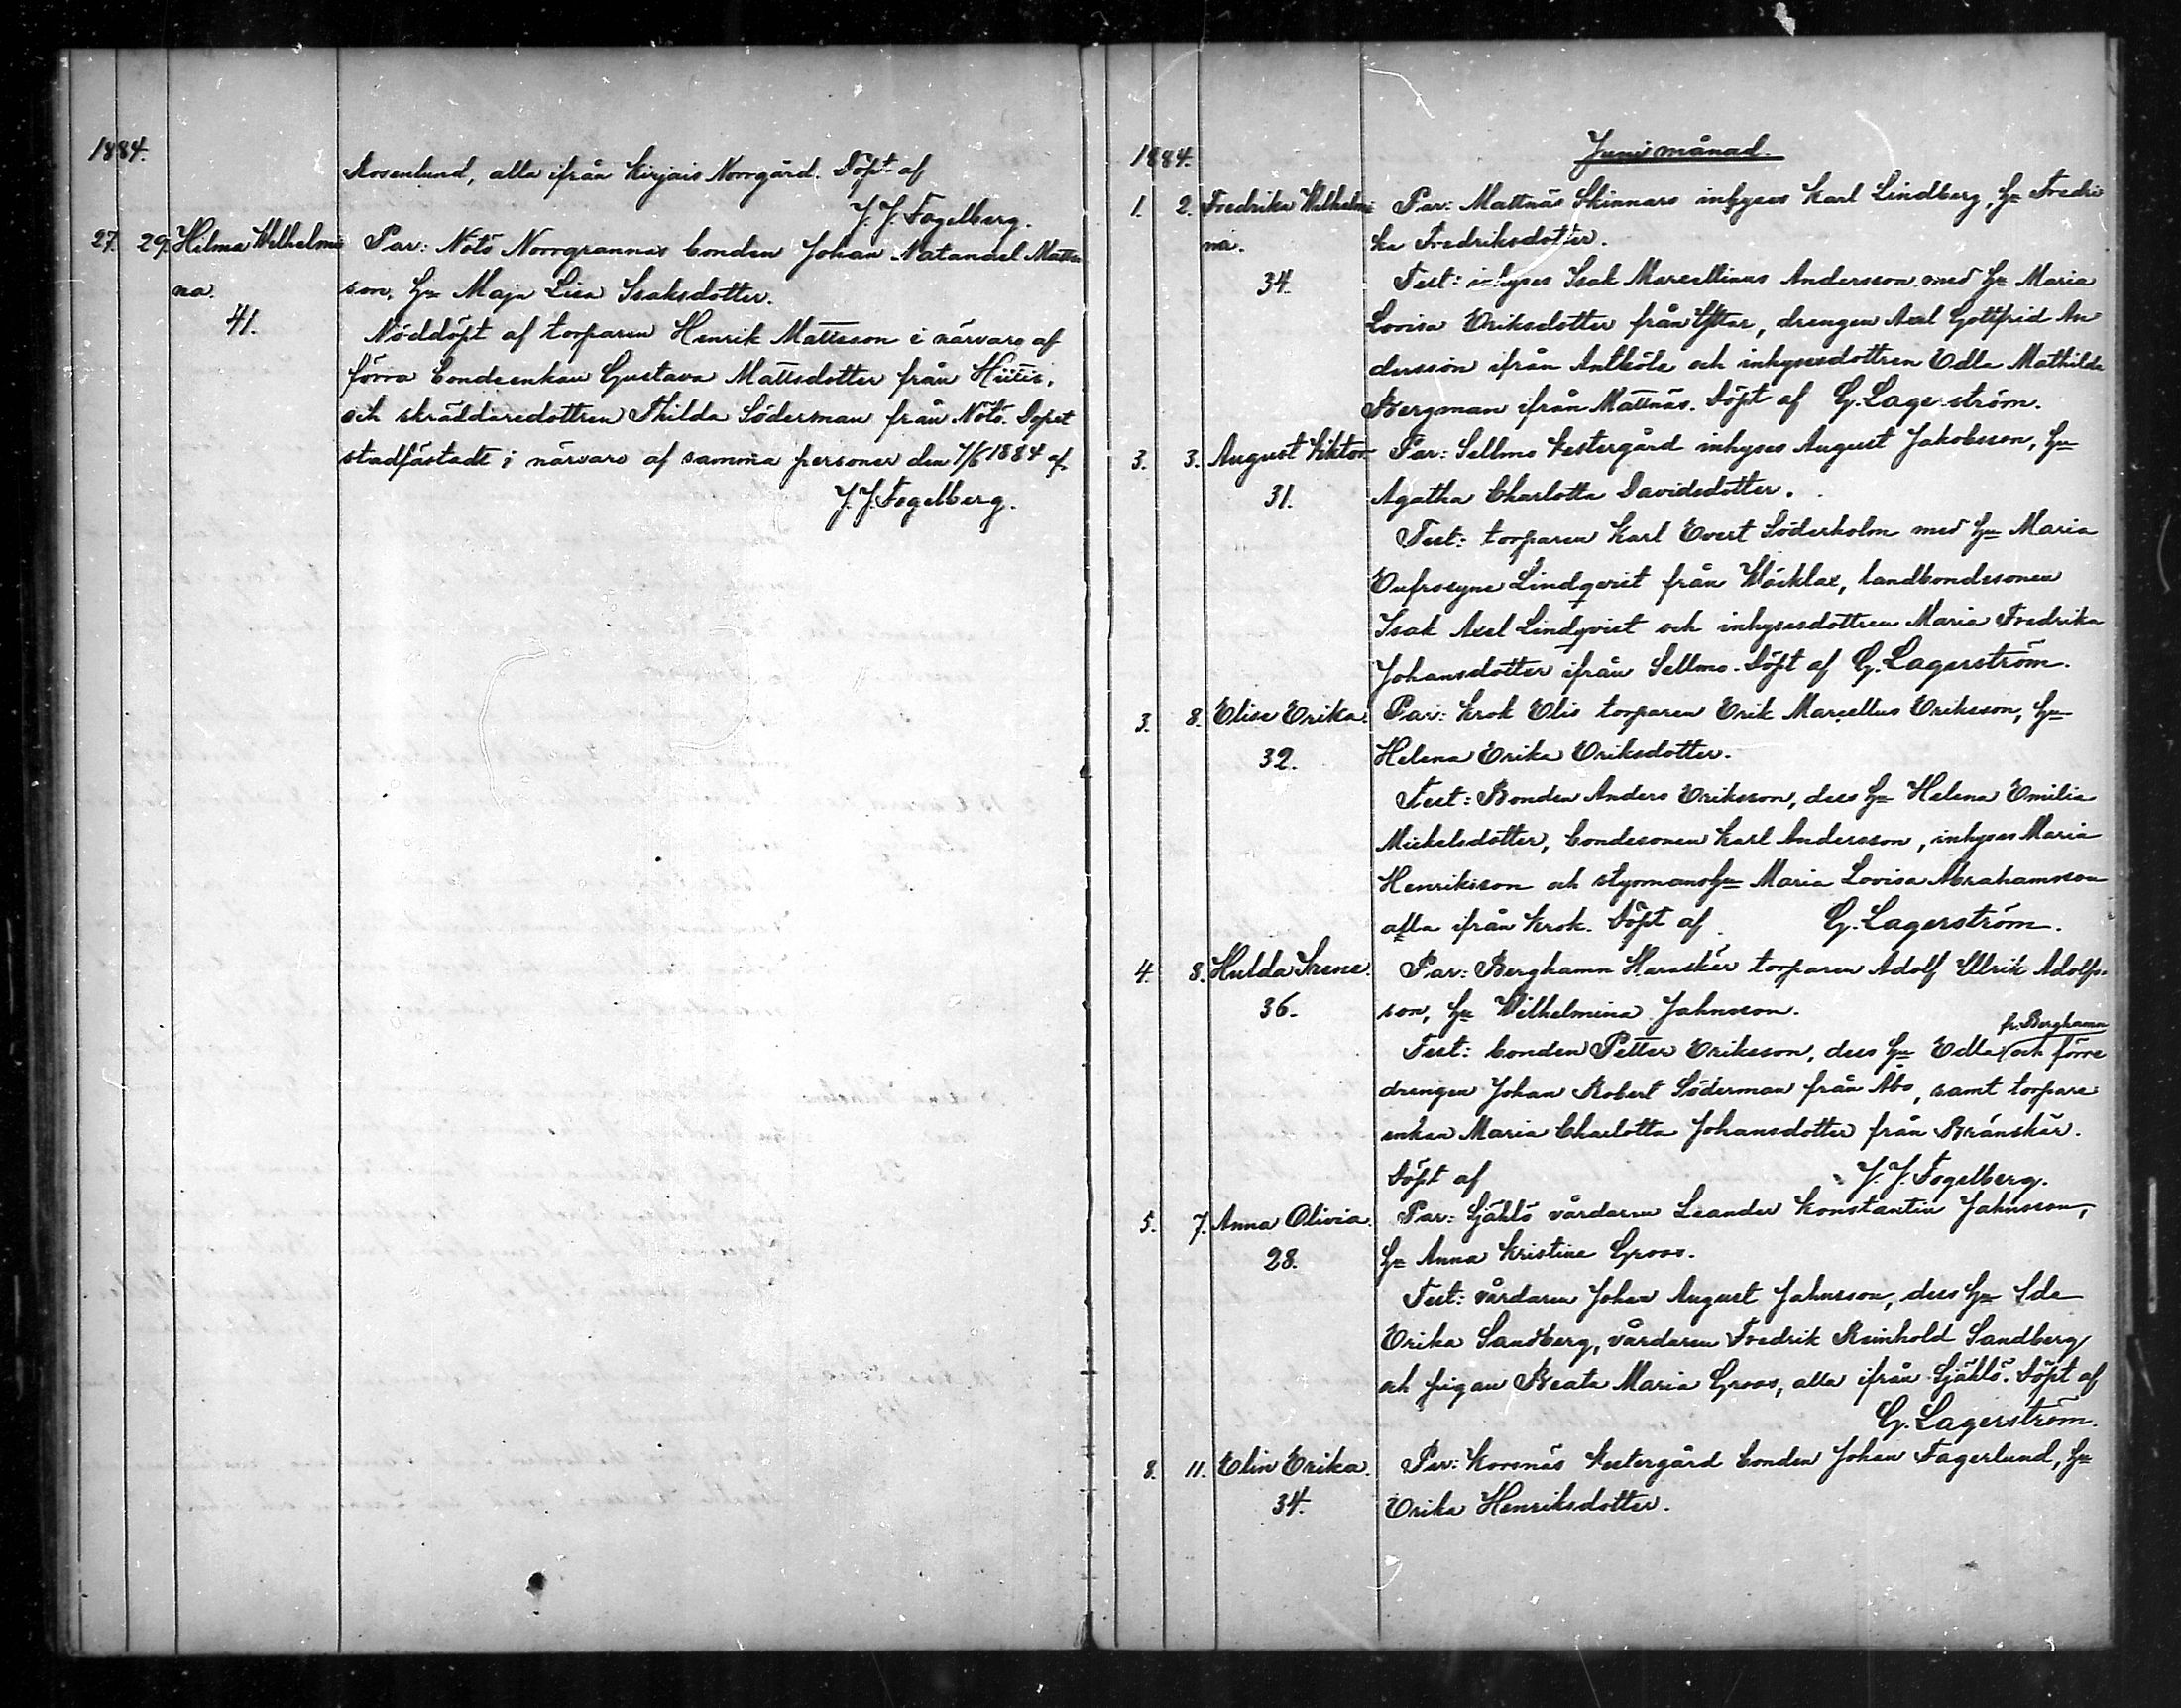 1884.
Rosenlund, alla ifrån Kirjais Norrgård. Döpt af
J. J. Fogelberg.
27. 29. Hilma Wilhelmi Par: Nötö Norrgrannas bonden Johan Natanael Matts
na. son, hu Maja Lisa Isaksdotter.
41. Nöddöpt af torparen Henrik Mattsson i närvaro af
förra bondeenkan Gustava Mattsdotter från Hiitis,
och skräddaredottren Thilda Söderman från Nötö. Dopet
stadfästadt i närvaro af samma personer den 7/6 1884 af
J. J. Fogelberg.
1884. Juni månad.
1. 2. Fredrika Wilhelmi Par: Mattnäs Skinnars inhyses Karl Lindberg, hu Fredri
na. ka Fredriksdotter.
34. Test: inhyses Isak Marcellinus Andersson med hu Maria
Lovisa Eriksdotter från, drengen Axel Gottfrid An
dersson ifrån och inhysesdottren Edla Mathilda
Bergman ifrån Mattnäs. Döpt af G. Lagerström.
3. 3. August Viktor Par: Sellmo Vestergård inhyses August Jakobsson, hu
31. Agatha Charlotta Davidsdotter.
Test: torparen Karl Evert Söderholm med hu Maria
Eufrosyne Lindqvist från Wäcklax, landbondesonen
Isak Axel Lindqvist och inhysesdottren Maria Fredrika
Johansdotter ifrån Sellmo. Döpt af G. Lagerström.
3. 8. Elise Erika. Par: Krok Elis torparen Erik Marcellus Eriksson, hu
32. Helena Erika Eriksdotter.
Test: Bonden Anders Eriksson, dess hu Helena Emilia
Mickelsdotter, bondesonen Karl Andersson, inhyses Maria
Henriksson och styrmanshu Maria Lovisa Abrahamsson
alla ifrån Krok. Döpt af G. Lagerström.
4. 8. Hulda Irene. Par: Berghamn Harskär torparen Adolf Ulrik Adolfs-
36. son, hu Wilhelmina Jahnsson.
fr. Berghamn
Test: bonden Petter Eriksson, dess hu Edla och förre
drengen Johan Robert Söderman från Åbo, samt torpare
enkan Maria Charlotta Johansdotter från Brånskär.
Döpt af J. J. Fogelberg.
5. 7. Anna Olivia. Par: Själö vårdaren Leander Konstantin Jahnsson,
28. hu Anna Kristina Groos.
Test: vårdaren Johan August Jahnsson, dess hu Ida
Erika Sandberg, vårdaren Fredrik Reinhold Sandberg
och pigan Beata Maria Groos, alla ifrån Själö. Döpt af
G. Lagerström.
8. 11. Elin Erika. Par: Korsnäs Vestergård bonden Johan Fagerlund, hu
34. Erika Henriksdotter.